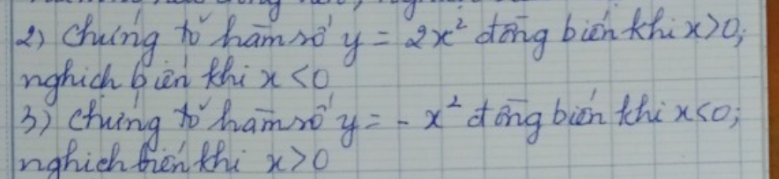 2) Chứng tỏ hàm số y = 2x² đồng biến khi x>0;
nghịch biến khi x <0
3) Chứng tỏ hàm số y = - x² đồng biến khi x<0;
nghịch biến khi x>0